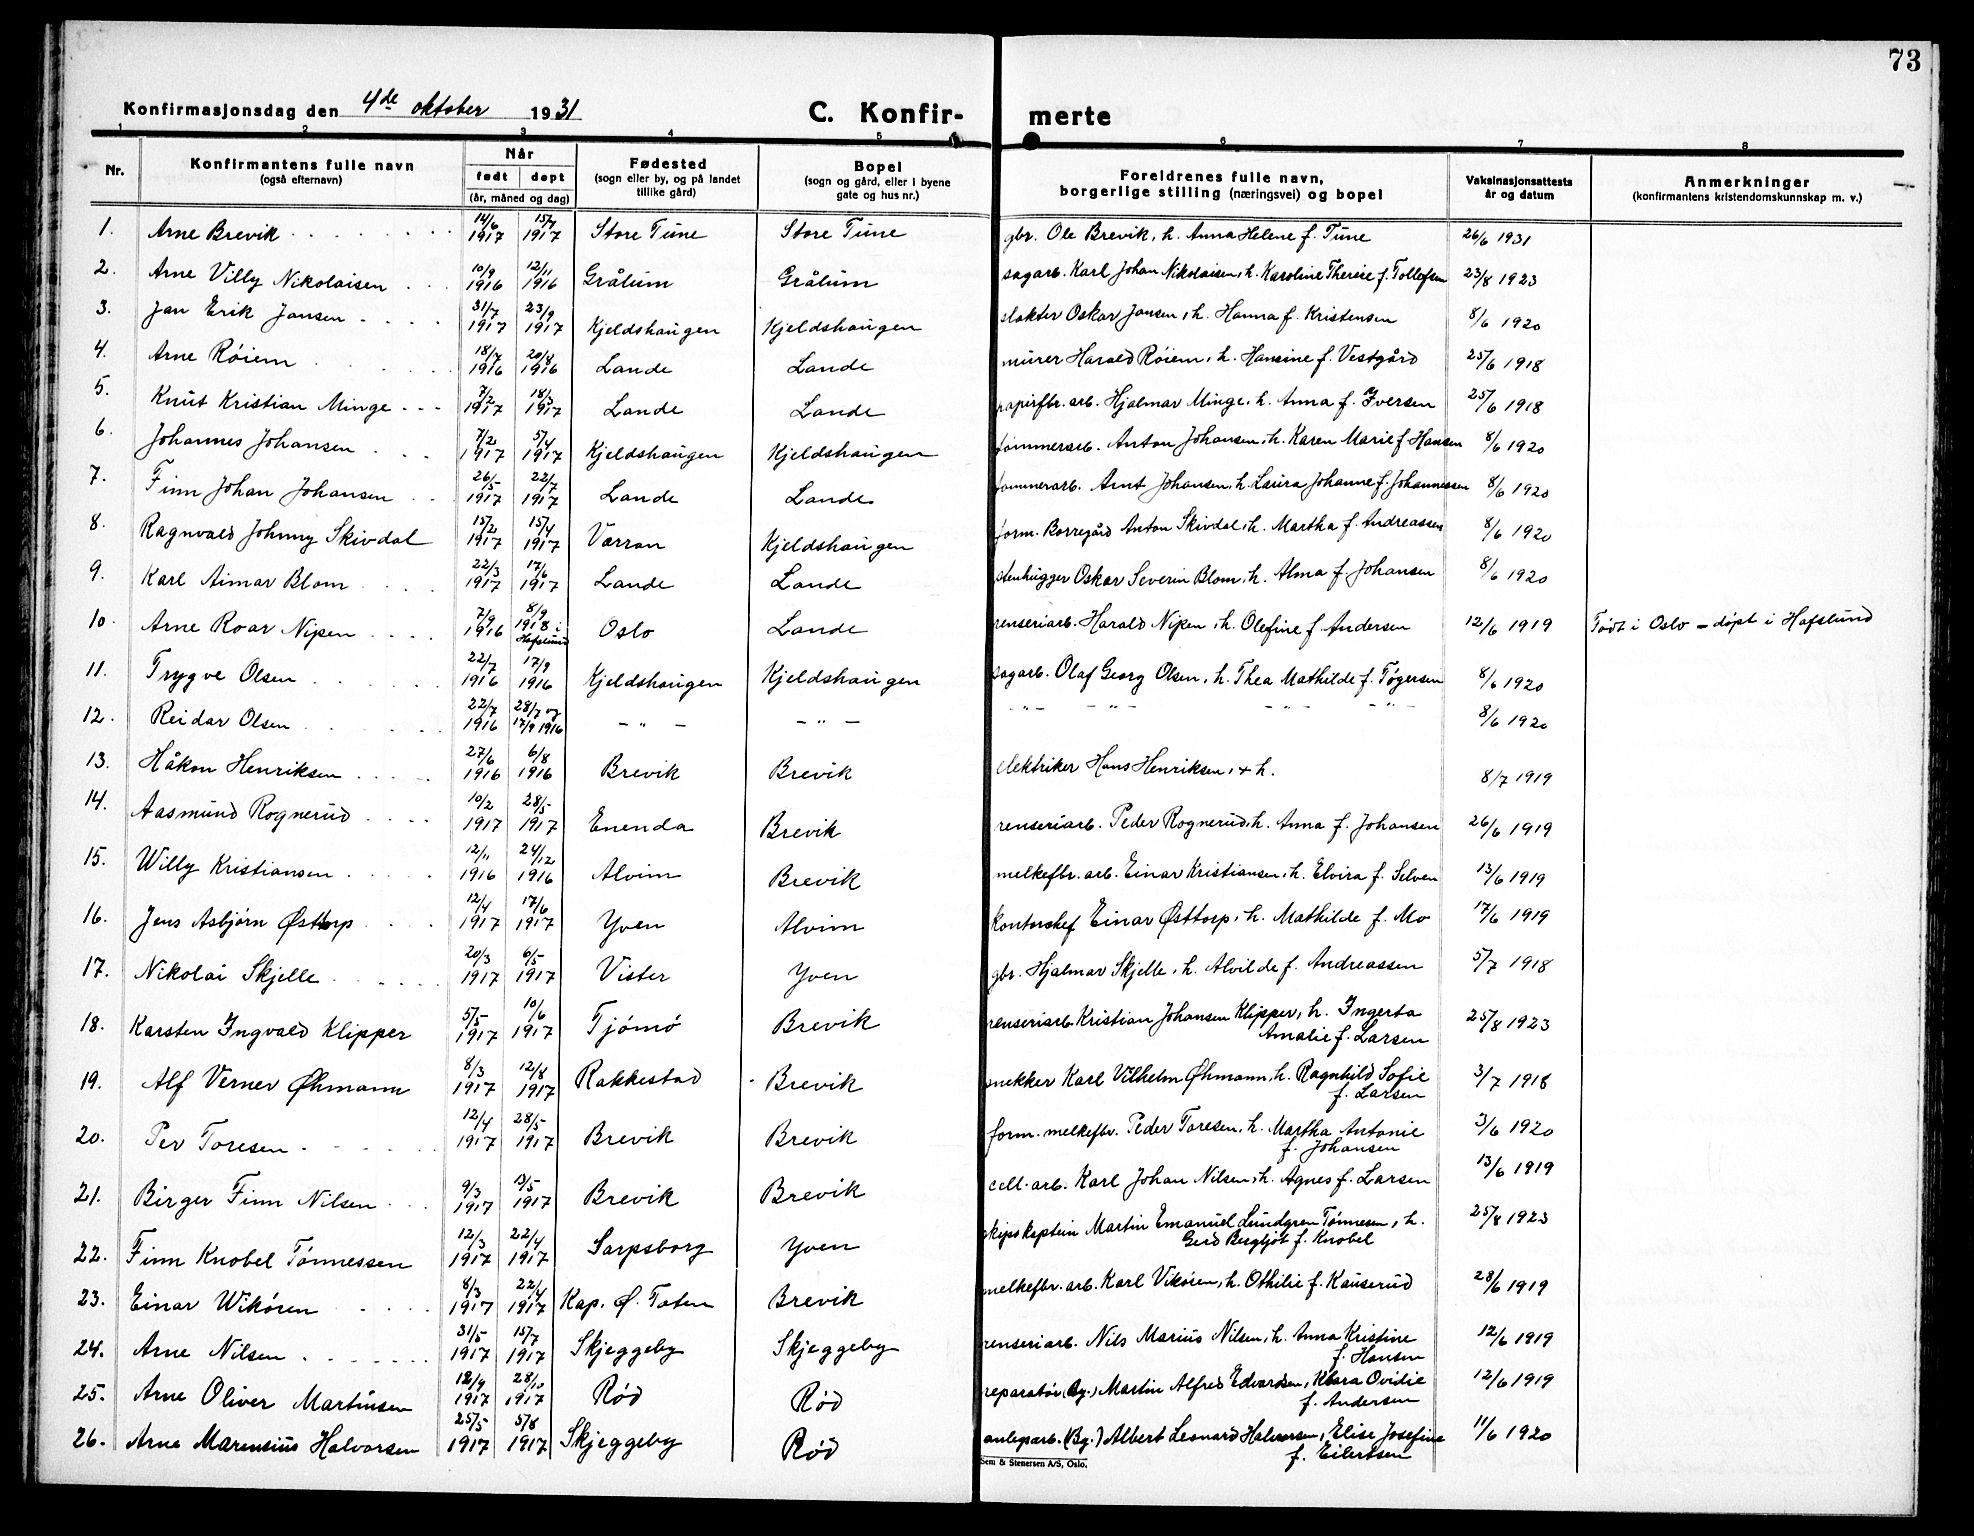 73
Konfirmasjonsdag den 4de oktober 1931 C. Konfir- merte
1 2 3 4 5 6 7 8
Nr. Konfirmantens fulle navn (også efternavn) Når født døpt (år, måned og dag) Fødested (sogn eller by, og på landet tillike gård) Bopel (sogn og gård, eller i byene gate og hus nr.) Foreldrenes fulle navn, borgerlige stilling (næringsvei) og bopel Vaksinasjonsattests år og datum Anmerkninger (konfirmantens kristendomskunnskap m. v.)
1. Arne Brevik 14/6 1917 15/7 1917 Store Tune Store Tune gbr. Ole Brevik, h. Anna Helene f. Tune 26/6 1931
2. Arne Villy Nikolaisen 10/9 1916 12/11 1916 Grålum Grålum sagarb. Karl Johan Nikolaisen, h. Karoline Therese f. Tollefsen 23/8 1923
3. Jan Erik Jansen 31/7 1917 23/9 1917 Kjeldshaugen Kjeldshaugen slakter Oskar Jansen, h. Hanna f. Kristensen 8/6 1920
4. Arne Röiem 18/7 1916 20/8 1916 Lande Lande murer Harald Röiem, h. Hansine f. Vestgård 25/6 1918
5. Knut Kristian Minge 7/2 1917 18/3 1917 Lande Lande papirfbr. arb. Hjalmar Minge, h. Anna f. Iversen 25/6 1918
6. Johannes Johansen 7/2 1917 5/4 1917 Kjeldshaugen Kjeldshaugen tömmerarb. Anton Johansen, h. Karen Marie f. Hansen 8/6 1920
7. Finn Johan Johansen 26/5 1917 22/7 1917 Lande Lande tömmerarb. Arnt Johansen, h. Laura Johanne f. Johannessen 8/6 1920
8. Ragnvald Johnny Skivdal 15/2 1917 15/4 1917 Varran Kjeldshaugen form. Borregård Anton Skivdal, h. Martha f. Andreassen 8/6 1920
9. Karl Aimar Blom 22/3 1917 17/6 1917 Lande Lande stenhugger Oskar Severin Blom, h. Alma f. Johansen 8/6 1920
10. Arne Roar Nipen 7/9 1916 8/9 1918 i Hafslund Oslo Lande renseriarb. Harald Nipen, h. Olefine f. Andersen 12/6 1919 Födt i Oslo – döpt i Hafslund
11. Trygve Olsen 22/7 1916 17/9 1916 Kjeldshaugen Kjeldshaugen sagarb. Olaf Georg Olsen, h. Thea Mathilde f. Tögersen 8/6 1920
12. Reidar Olsen 22/7 1916 28/7 og 17/9 1916 – " – – " – – " – – " – – " – – " – 8/6 1920
13. Håkon Henriksen 27/6 1916 6/8 1916 Brevik Brevik elektriker Hans Henriksen, + h. 8/7 1919
14. Aasmund Rognerud 10/2 1917 28/5 1917 Enenda Brevik renseriarb. Peder Rognerud, h. Anna f. Johansen 26/6 1919
15. Willy Kristiansen 12/11 1916 24/12 1916 Alvim Brevik melkefbr. arb. Einar Kristiansen, h. Elvira f. Selven 13/6 1919
16. Jens Asbjörn Østtorp 12/4 1917 17/6 1917 Yven Alvim kontorchef Einar Østtorp, h. Mathilde f. Mo 17/6 1919
17. Nikolai Skjelle 20/3 1917 6/5 1917 Vister Yven gbr. Hjalmar Skjelle, h. Alvilde f. Andreassen 5/7 1918
18. Karsten Ingvald Klipper 5/5 1917 10/6 1917 Tjömö Brevik renseriarb. Kristian Johansen Klipper, h. Ingerta Amalie f. Larsen 25/8 1923
19. Alf Verner Øhmann 8/3 1917 12/8 1917 Rakkestad Brevik snekker Karl Vilhelm Øhmann, h. Ragnhild Sofie f. Larsen 3/7 1918
20. Per Toresen 12/4 1917 28/5 1917 Brevik Brevik form. melkefbr. Peder Toresen, h. Martha Antonie f. Johansen 3/6 1920
21. Birger Finn Nilsen 9/3 1917 13/5 1917 Brevik Brevik cell. arb. Karl Johan Nilsen, h. Agnes f. Larsen 13/6 1919
22. Finn Knobel Tönnessen 12/3 1917 22/4 1917 Sarpsborg Yven skipskaptein Martin Emanuel Lundgren Tönnesen, h. Gerd Bergljot f. Knobel 25/8 1923
23. Einar Wikören 8/3 1917 22/4 1917 Kap. Ø. Toten Brevik melkefbr. arb. Karl Vikören, h. Othilie f. Kauserud 28/6 1919
24. Arne Nilsen 31/5 1917 15/7 1917 Skjeggeby Skjeggeby renseriarb. Nils Marius Nilsen, h. Anna Kristine f. Hansen 12/6 1919
25. Arne Oliver Martinsen 12/9 1917 28/10 1917 Röd Röd reparatör (By.) Martin Alfred Edvardsen, Klara Ovidie f. Andersen 12/6 1919
26. Arne Marensius Halvorsen 25/5 1917 5/8 1917 Skjeggeby Röd anlegarb. (By.) Albert Leonard Halvorsen, Elise Josefine f. Eilertsen 11/6 1920
Sem & Stenersen A/S, Oslo.